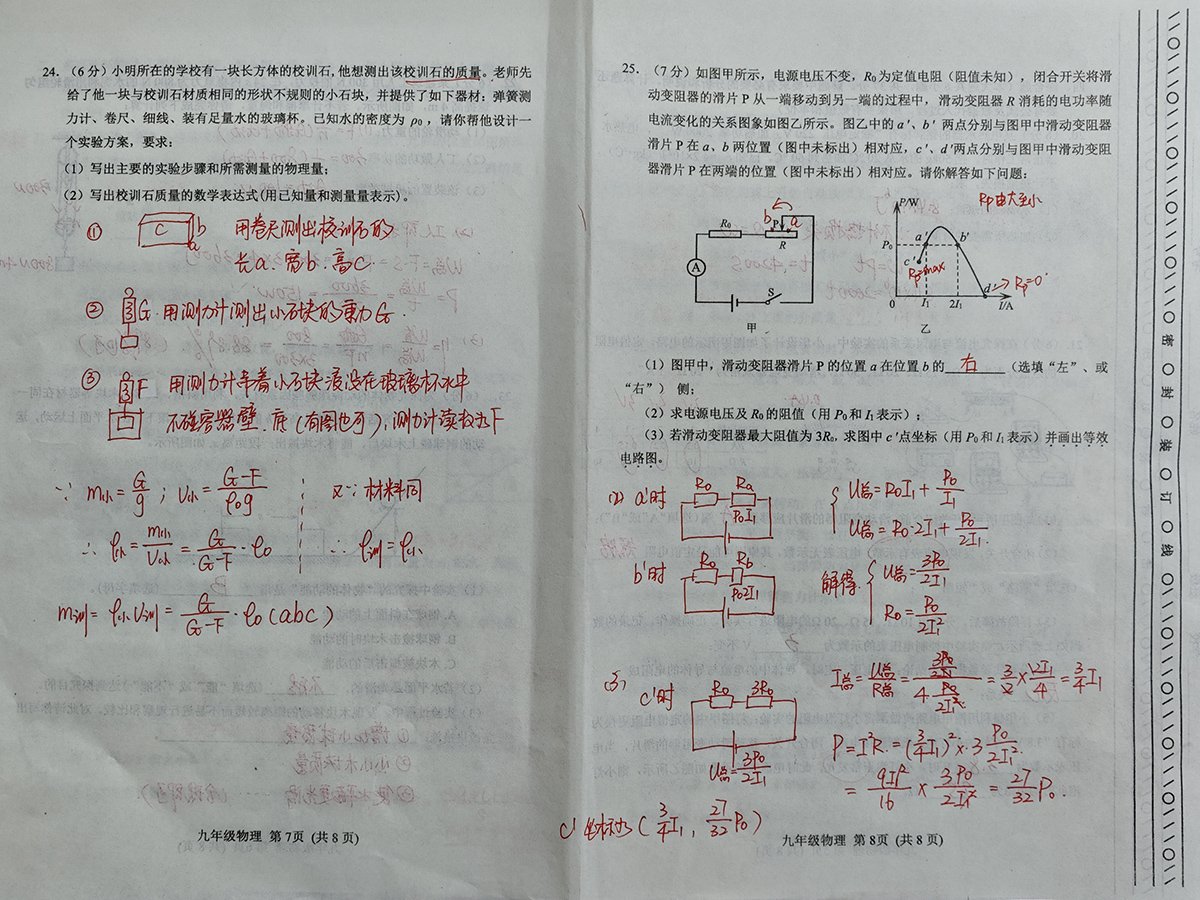 24. （6分）小明所在的学校有一块长方体的校训石，他想测出该校训石的质量。老师先
给了他一块与校训石材质相同的形状不规则的小石块，并提供了如下器材：弹簧测
力计、卷尺、细线、装有足量水的玻璃杯。已知水的密度为 ρ₀，请你帮他设计一
个实验方案，要求：
（1）写出主要的实验步骤和所需测量的物理量；
（2）写出校训石质量的数学表达式(用已知量和测量量表示)。
① c b a 用卷尺测出校训石的
长a、宽b、高c.
② G. 用测力计测出小石块的重力G.
③ F 用测力计吊着小石块浸没在玻璃杯水中
不碰容器壁、底(有图也可)，测力计读数为F
∵ m小=G/g ; V小=(G-F)/ρ₀g 又∵材料同
∴ ρ小=m小/V小=G/(G-F)·ρ₀ ∴ ρ训=ρ小
m训=ρ小V训=G/(G-F)·ρ₀(abc)
九年级物理 第7页（共8页）
25. （7分）如图甲所示，电源电压不变，R₀为定值电阻（阻值未知），闭合开关将滑
动变阻器的滑片 P 从一端移动到另一端的过程中，滑动变阻器 R 消耗的电功率随
电流变化的关系图象如图乙所示。图乙中的 a′、b′ 两点分别与图甲中滑动变阻器
滑片 P 在 a、b 两位置（图中未标出）相对应，c′、d′两点分别与图甲中滑动变阻
器滑片 P 在两端的位置（图中未标出）相对应。请你解答如下问题：
R₀ b P a R A S 甲
P/W Rp由大至小 P₀ a′ b′ c′ Rp=max d′ Rp=0 0 I₁ 2I₁ I/A 乙
（1）图甲中，滑动变阻器滑片 P 的位置 a 在位置 b 的 右 （选填“左”、或
“右”） 侧；
（2）求电源电压及 R₀的阻值（用 P₀和 I₁表示）；
（3）若滑动变阻器最大阻值为 3R₀，求图中 c′点坐标（用 P₀和 I₁表示）并画出等效
电路图。
(2) a′时 R₀ Ra P₀I₁ U总=R₀I₁+P₀/I₁
U总=R₀·2I₁+P₀/2I₁.
b′时 R₀ Rb P₀2I₁ 解得 U总=3P₀/2I₁
R₀=P₀/2I₁²
(3) c′时 R₀ 3R₀ U总=3P₀/2I₁
I总=U总/R总=(3P₀/2I₁)/(4·P₀/2I₁²)=3/2×2I₁/4=3/4I₁
P=I²R=(3/4I₁)²×3·P₀/2I₁²
=9I₁²/16×3P₀/2I₁²=27/32P₀.
c′坐标为(3/4I₁, 27/32P₀)
九年级物理 第8页（共8页）
密 封 装 订 线